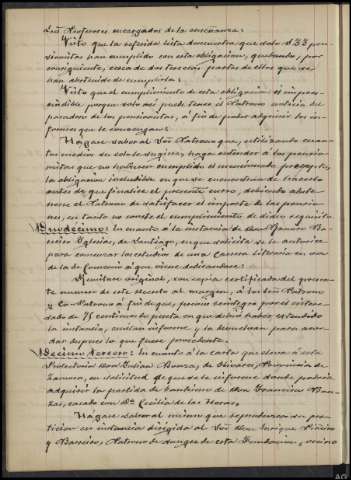 los Profesores encargados de la enseñanza:
Visto que la referida lista demuestra que solo 133 pensionistas han cumplido con esta obligación, quebrando, por
consiguiente, cerca de dos terceras partes de ellos que se
han abstenido de cumplirla:
Visto que el cumplimiento de esta obligación es imprescindible porque solo así puede tener el Patrono noticia del
paradero de los pensionistas, a fin de poder adquirir los informes que le convengan:
Hágase saber al Sor Patrono que, utilizando cuantos medios de estadística, haga entender a los pensionistas que no hubiesen cumplido el mencionado precepto,
la obligación ineludible en que se encuentran de hacerlo
antes de que finalice el presente curso, debiendo abstenerse el Patrono de satisfacer el importe de las pensiones, en tanto no conste el cumplimiento de dicho requisito
Duodécimo: En cuanto a la instancia de Don Ramón Barreiro Iglesias, de Santiago, en que solicita se le autorice
para comenzar los estudios de una Carrera literaria en vez
de la de Comercio a que viene dedicándose:
Remítase original, con copia certificada del presente número de este decreto al margen, a los Sres Patrono
y Co-Patrono a fin de que, previo reintegro por el interesado de 75 céntimos de peseta en que debió haber extendido
la instancia, emitan informe, y la devuelvan para acordar después lo que fuere procedente.
Décimo tercero: En cuanto a la carta que eleva a esta
Protectoría Don Julián Barza, de Olivares, Provincia de
Zamora, en solicitud de que se le informe donde podría
adquirir la partida de bautismo de don Francisco Barzas, casado con Da Cecilia de las Heras;
Hágase saber al mismo que reproduzca su petición en instancia dirigida al Sor Don Enrique Piñeiro
y Barreiro, Patrono de sangre de esta Fundación, vecino